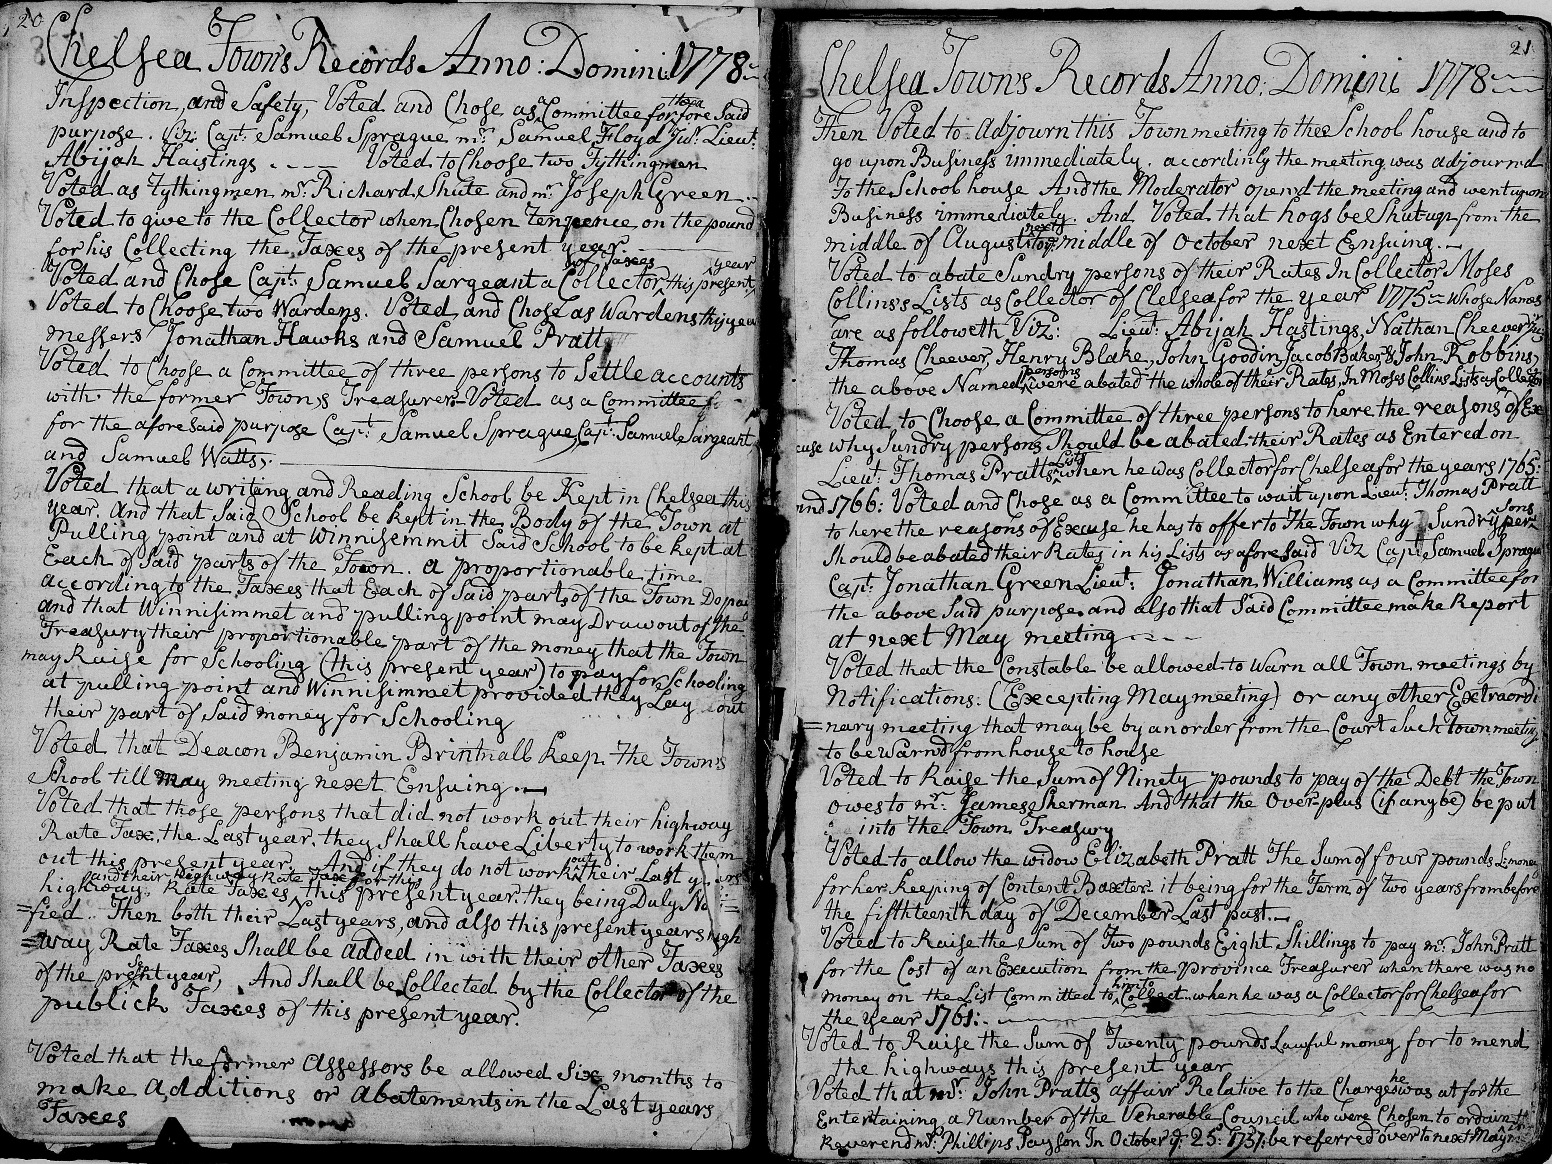 20
Chelsea Town's Records Anno: Domini 1778
Inspection, and Safety, Voted and Chose as a Committee for the fore Said
purpose. Viz: Capt: Samuel Sprague mr: Samuel Floyd Jur: Lieut:
Abijah Haistings. ---- Voted to Choose two Tythingmen
Voted as Tythingmen mr: Richard Shute and mr: Joseph Green
Voted to give to the Collector when Chosen Tenpence on the pound
for his Collecting the Taxes of the present year.
Voted and Chose Capt: Samuel Sargeant a Collector of Taxes this present year
Voted to Choose two Wardens. Voted and Chose as Wardens this year
messers Jonathan Hawks and Samuel Pratt
Voted to Choose a Committee of three persons to Settle accounts
with the former Town,s Treasurer. Voted as a Committee
for the aforesaid purpose Capt: Samuel Sprague, Capt: Samuel Sargeant
and Samuel Watts,
Voted that a writing and Reading School be Kept in Chelsea this
year. And that Said School be kept in the Body of the Town at
Pulling point and at Winnisemmit Said School to be kept at
Each of Said parts of the Town. a proportionable time
according to the Taxes that Each of Said parts of the Town Do pay
and that Winnisimmet and pulling point may Draw out of the
Treasury their proportionable part of the money that the Town
may Raise for Schooling (this present year) to pay for Schooling
at pulling point and Winnisimmet provided they Lay out
their part of Said money for Schooling
Voted that Deacon Benjamin Brintnall keep The Town's
School till may meeting next Ensuing.
Voted that those persons that did not work out their highway
Rate Tax, the Last year. they Shall have Liberty to work them
out this present year. And if they do not work out their Last years
and their highway Rate Tax for this
highway Rate Taxes this present year. they being Duly No
=fied. Then both their Last years, and also this present years high
=way Rate Taxes Shall be added in with their other Taxes
of the present year, And Shall be Collected by the Collector of the
publick Taxes of this present year.
Voted that the former Assessors be allowed Six months to
make Additions or Abatements in the Last years
Taxes
21
Chelsea Town's Records Anno: Domini 1778
Then Voted to adjourn this Town meeting to the School house and to
go upon Business immediately. accordinly the meeting was adjournd
To the School house And the Moderator opend the meeting and went upon
Business immediately. And Voted that hogs be Shut up from the
middle of August next to middle of October next Ensuing.
Voted to abate Sundry persons of their Rates In Collector Moses
Collins's Lists as Collector of Chelsea for the year 1775 = Whose Names
are as followeth Viz: Lieut: Abijah Hastings, Nathan Cheever
Thomas Cheever, Henry Blake, John Goodin, Jacob Baker & John Robbins,
the above Named persons were abated the whole of their Rates, In Moses Collins Lists as Collector
Voted to Choose a Committee of three persons to here the reasons of Ex
cuse why Sundry persons Should be abated their Rates as Entered on
Lieut: Thomas Pratts Lists when he was Collector for Chelsea for the years 1765:
and 1766: Voted and Chose as a Committee to wait upon Lieut: Thomas Pratt
to here the reasons of Excuse he has to offer to The Town why Sundry persons
Should be abated their Rates in his Lists as aforesaid Viz Capt: Samuel Sprague
Capt: Jonathan Green Lieut: Jonathan Williams as a Committee for
the above Said purpose. and also that Said Committee make Report
at next May meeting ----
Voted that the Constable be allowed to Warn all Town meetings by
Notifications: (Excepting May meeting) or any other Extraordi
=nary meeting that may be by an order from the Court Such Town meeting
to be Warnd from house to house
Voted to Raise the Sum of Ninety pounds to pay of the Debt the Town
owes to mr: James Sherman And that the Overplus (if any be) be put
into the Town Treasury
Voted to allow the widow Elizabeth Pratt The Sum of four pounds L: money
for her keeping of Content Baxter. it being for the Term of two years from before
the fifthteenth day of December Last past.
Voted to Raise the Sum of Two pounds Eight Shillings to pay mr: John Pratt
for the Cost of an Execution from the province Treasurer when there was no
money on the List Committed to him to Collect when he was a Collector for Chelsea for
the year 1761:
Voted to Raise the Sum of Twenty pounds Lawful money for to mend
the highways this present year
Voted that mr: John Pratts affair Relative to the Charges he was at for the
Entertaining a Number of the Venerable Council who were Chosen to ordain
Reverend mr: Phillips Payson In October ye: 25: 1757: be referred over to next May